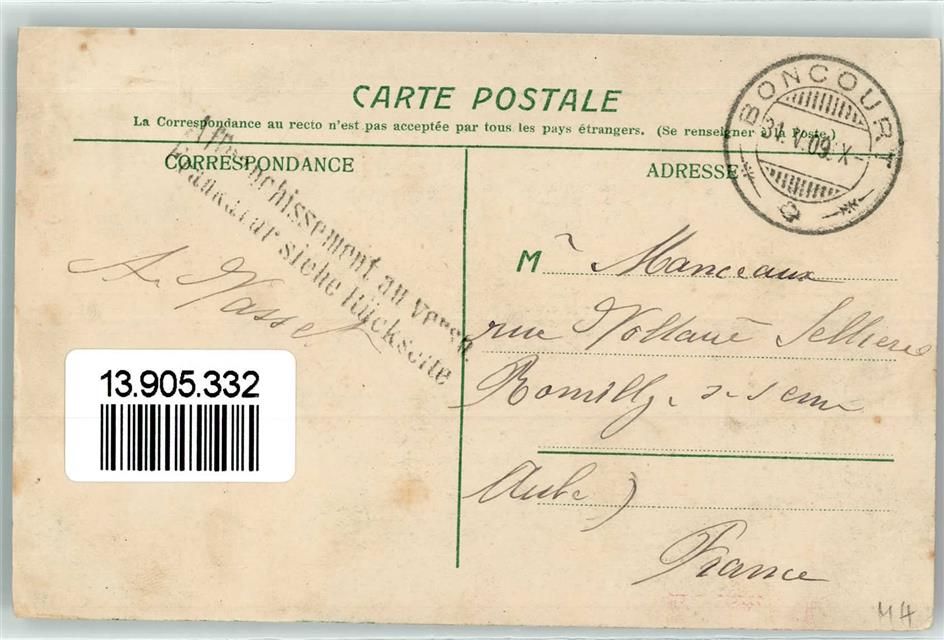 CARTE POSTALE
La Correspondance au recto n'est pas acceptée par tous les pays étrangers. (Se renseigner à la Poste.)
CORRESPONDANCE
ADRESSE
BONCOURT
31.V.09.X-
Affranchissement au verso.
Frankatur siehe Rückseite
A. Vasset
M Manceaux
rue Voltaire Sellières
Romilly-s-seine
Aube)
France
13.905.332
44